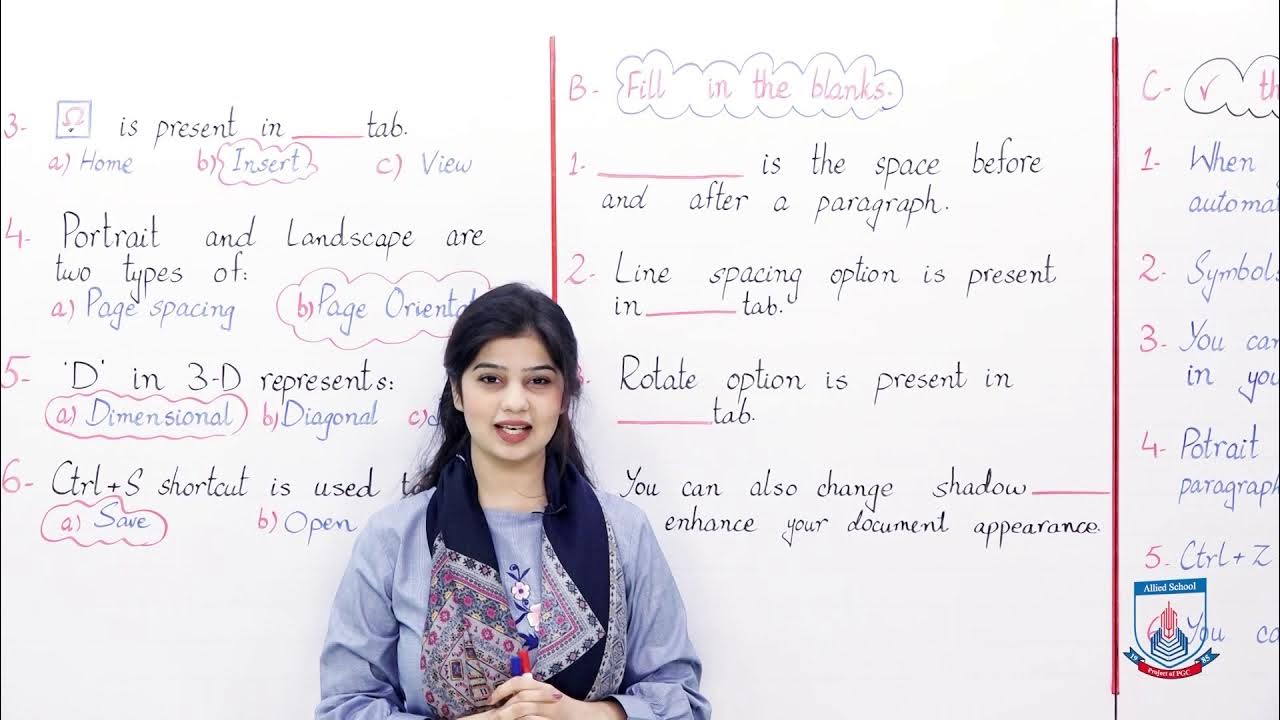 3- Ω is present in ______ tab.
a) Home b) Insert c) View
4- Portrait and Landscape are
two types of:
a) Page spacing b) Page
5- 'D' in 3-D represents:
a) Dimensional b) Diagonal c)
6- Ctrl+S shortcut is used
a) Save b) Open
B- Fill in the blanks.
1- ____________ is the space before
and after a paragraph.
2- Line spacing option is present
in ________ tab.
Rotate option is present in
________ tab.
You can also change shadow ______
enhance your document appearance.
C- ✓
1- When
2-
3- You can
in
4- Potrait
5- Ctrl + Z
You
Allied School
19 85
Project of PGC